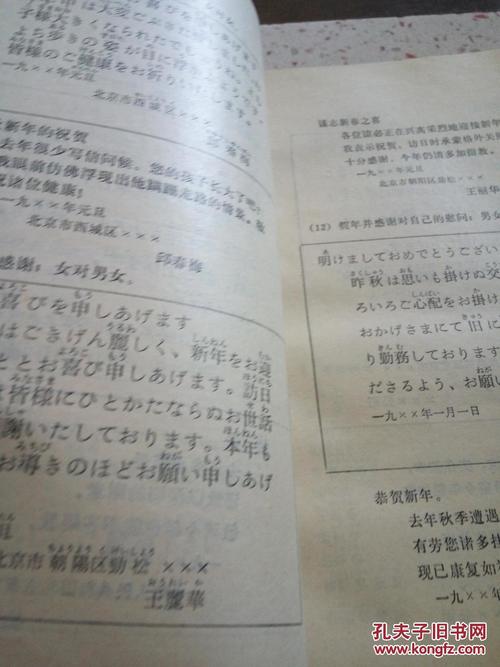 喜びを
申は大変ごぶさた
子様大きくなられたでも
よち歩きの姿が目に浮
皆様のご健康をお祈りいたします。
一九××年元旦
北京市西城区×××
新年的祝贺
去年很少写信问候。您的孩子长大了吧?
我眼前仿佛浮现出他蹒跚走路的情景。
祝诸位健康!
一九××年元旦
北京市西城区×××
邱春梅
感谢:女对男女。
喜びを申しあげます
はごきげん麗しく、新年をお迎
ととお喜び申しあげます。訪日
は皆様にひとかたならぬお世話
謝いたしております。本年も
お導きのほどお願い申しあげ
北京市朝陽区勁松×××
王麗華
谨志新春之喜
各位谅必正在兴高采烈地迎接新年
我表示祝贺。访日时承蒙格外关
十分感谢,今年仍请多加指教。
一九××年元旦
北京市朝阳区劲松×××
王丽华
(12) 贺年并感谢对自己的慰问:男女
明けましておめでとうござい
昨秋は思いも掛けぬ交
ろいろご心配をお掛け
おかげさまにて旧に
り勤務しております
ださるよう、お願い
一九××年一月一日
恭贺新年。
去年秋季遭遇
有劳您诸多挂
现已康复如
一九××年
孔夫子旧书网
www.kongfz.com